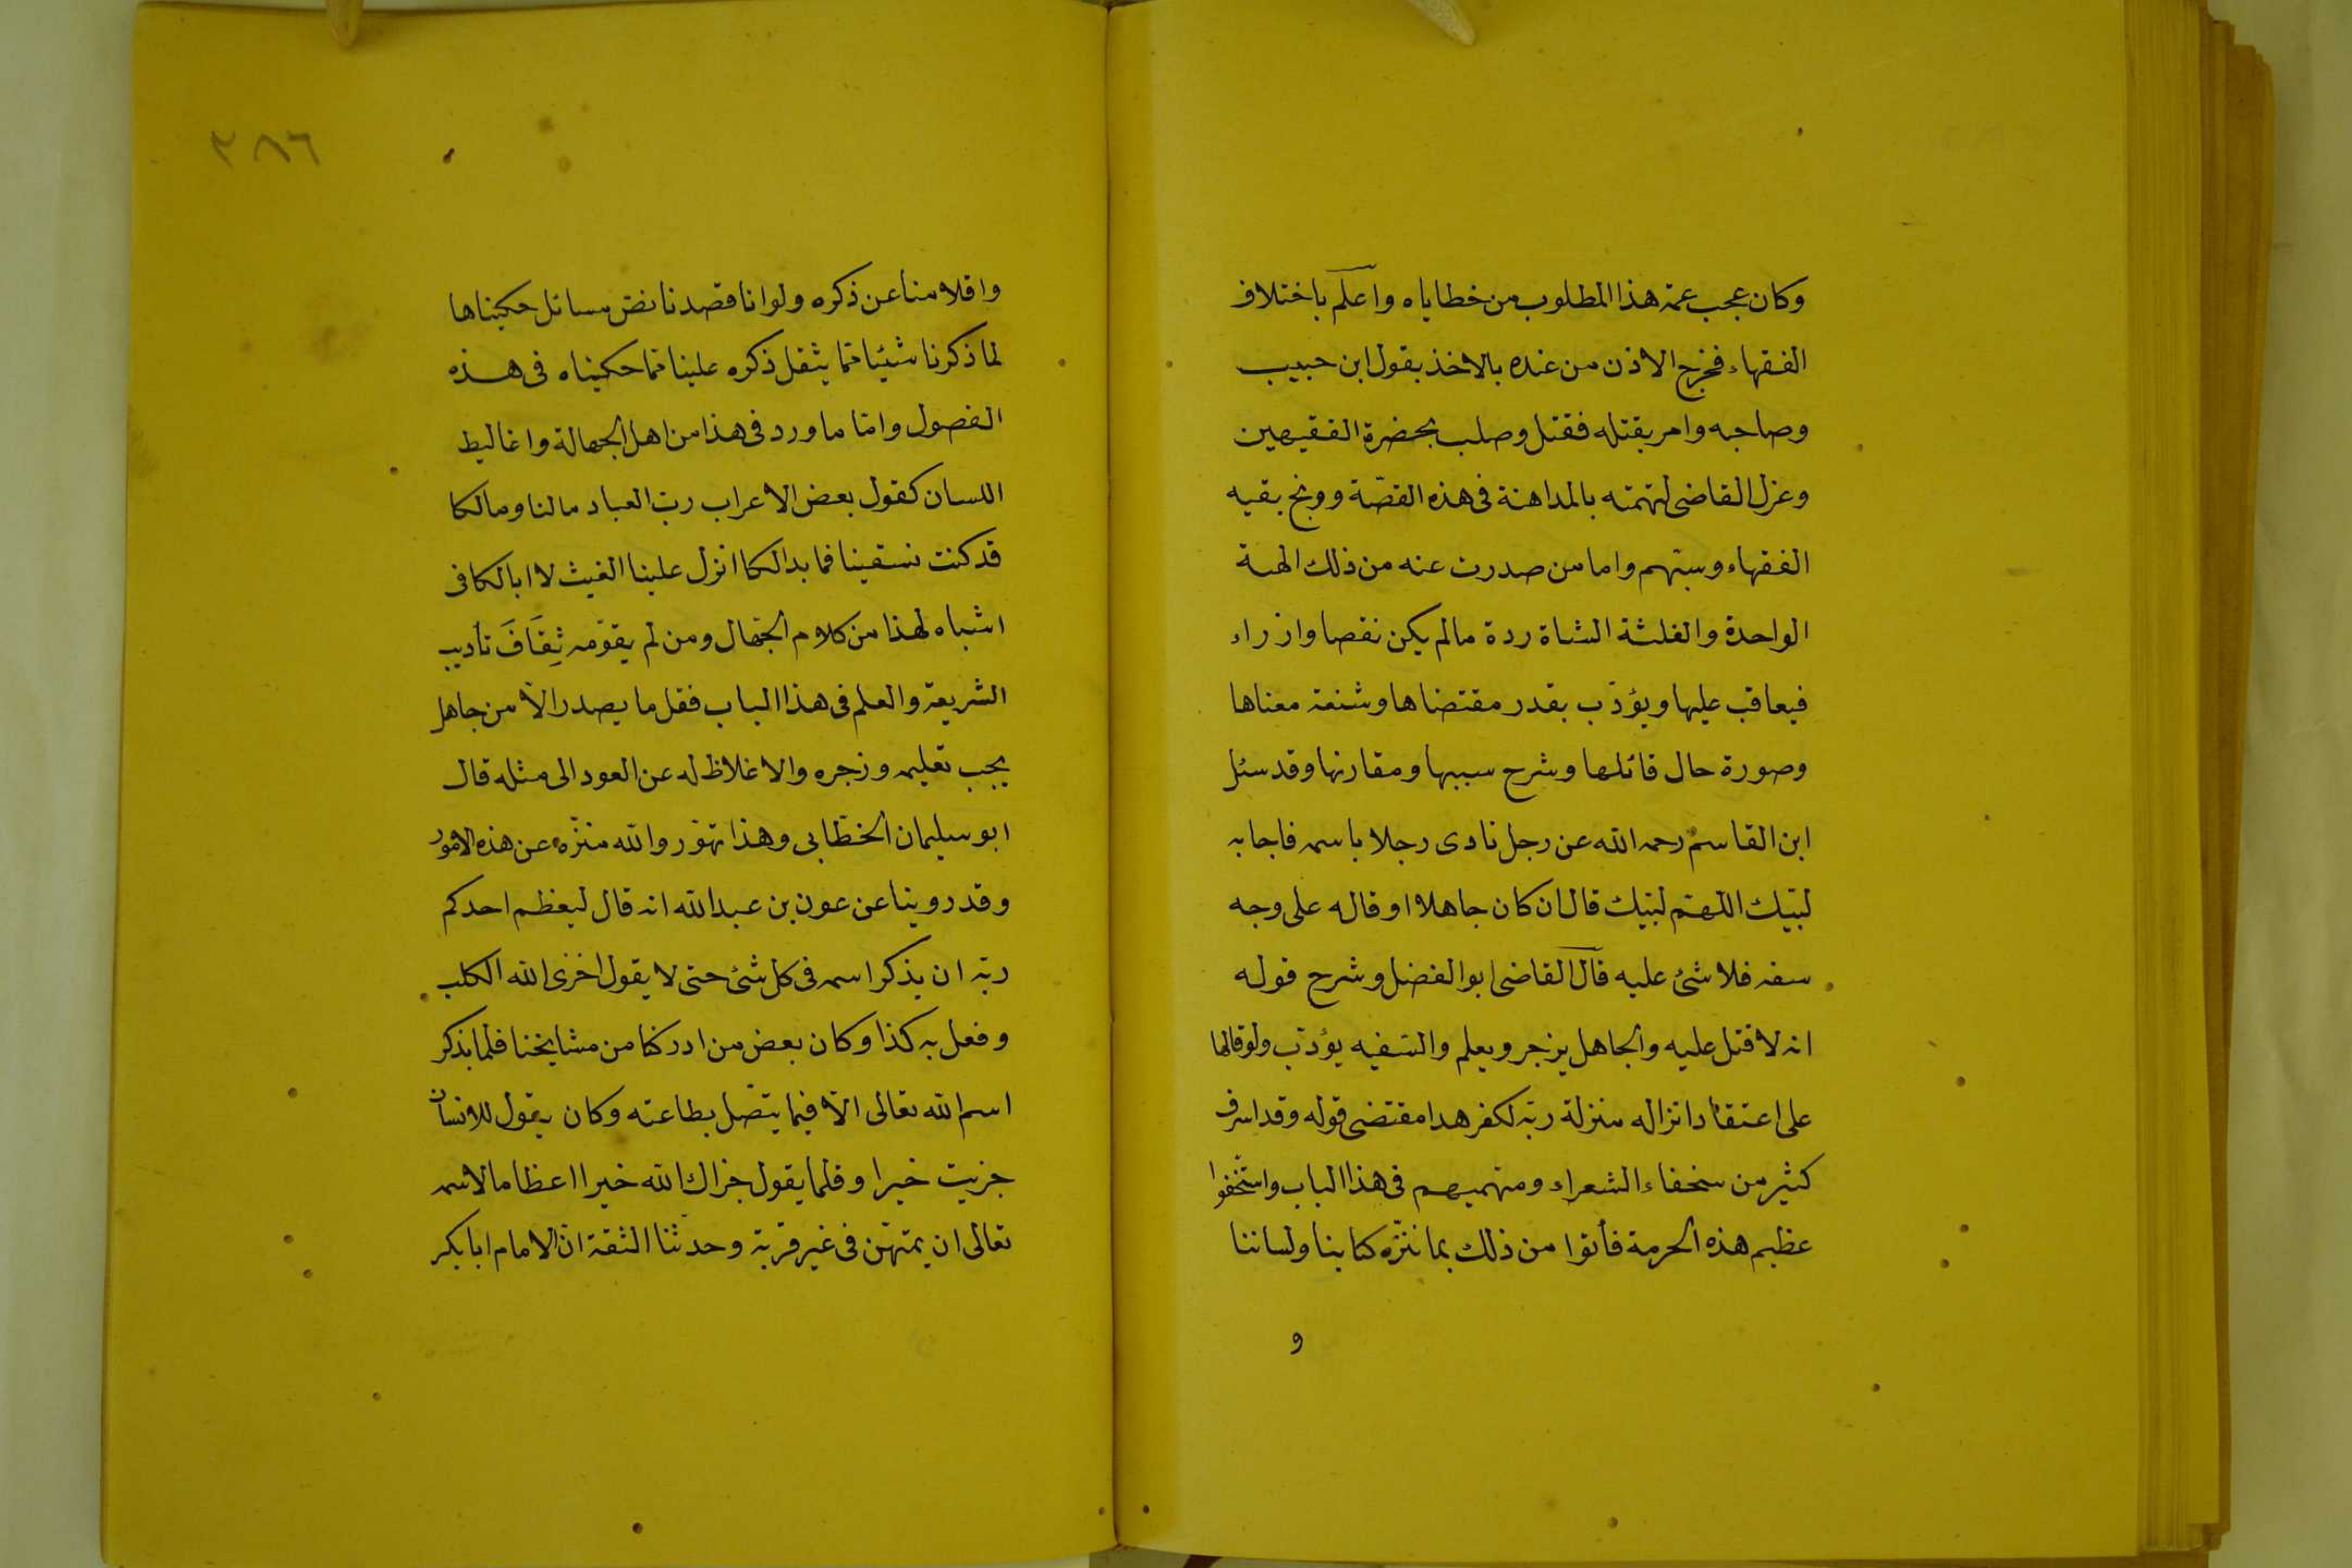 وكان عجب عمة هذا المطلوب من خطاياه واعلم باختلاف
الفقهاء فخرج الاذن من عنده بالاخذ بقول ابن حبيب
وصاحبه وامر بقتله فقتل وصلب بحضرة الفقيهين
وعزل القاضى لتهمته بالمداهنة فى هذه القصّة ووبخ بقيه
الفقهاء وسبّهم واما من صدرت عنه من ذلك الهنة
الواحدة والفلتة الشاة ردة مالم يكن نقصا وازراء
فيعاقب عليها ويؤدّب بقدر مقتضاها وشنعة معناها
وصورة حال قائلها وشرح سببها ومقارنها وقد سئل
ابن القاسم رحمه الله عن رجل نادى رجلا باسمه فاجابه
لبّيك اللّهمّ لبّيك قال ان كان جاهلا او قاله على وجه
سفه فلا شئ عليه قال القاضى ابو الفضل وشرح قوله
انه لا قتل عليه والجاهل يزجر ويعلم والسّفيه يؤدّب ولو قالها
على اعتقاد انزاله منزلة ربّه لكفر هدا مقتضى قوله وقد اسرف
كثير من سخفاء الشعراء ومتهميهم فى هذا الباب واستخفّوا
عظيم هذه الحرمة فأتوا من ذلك بما ننزّه كتابنا ولساننا
و
٣٨٦
واقلامنا عن ذكره ولو انا قصدنا نصّ مسائل حكيناها
لما ذكرنا شيئا ممّا يثقل ذكره علينا ممّا حكيناه فى هذه
الفصول وامّا ما ورد فى هذا من اهل الجهالة واغاليط
اللسان كقول بعض الاعراب ربّ العباد مالنا ومالكا
قد كنت تسقينا فما بدالكا انزل علينا الغيث لا ابالكا فى
اشباه لهذا من كلام الجهّال ومن لم يقوّمه ثِقَافَ تأديب
الشريعة والعلم فى هذا الباب فقل ما يصدر الّا من جاهل
يجب تعليمه وزجره والاغلاظ له عن العود الى مثله قال
ابو سليمان الخطّابى وهذا تهوّر والله منزّه عن هذه الامور
وقد روينا عن عون بن عبد الله انه قال ليعظم احدكم
ربّه ان يذكر اسمه فى كل شئ حتى لا يقول اخزى الله الكلب
وفعل به كذا وكان بعض من ادركنا من مشايخنا فلما يذكر
اسم الله تعالى الّا فيما يتّصل بطاعته وكان يقول للانسان
جزيت خيرا وقلما يقول جزاك الله خيرا اعظاما لاسمه
تعالى ان يمتهن فى غير قربة وحدثنا الثقة انّ الامام ابا بكر